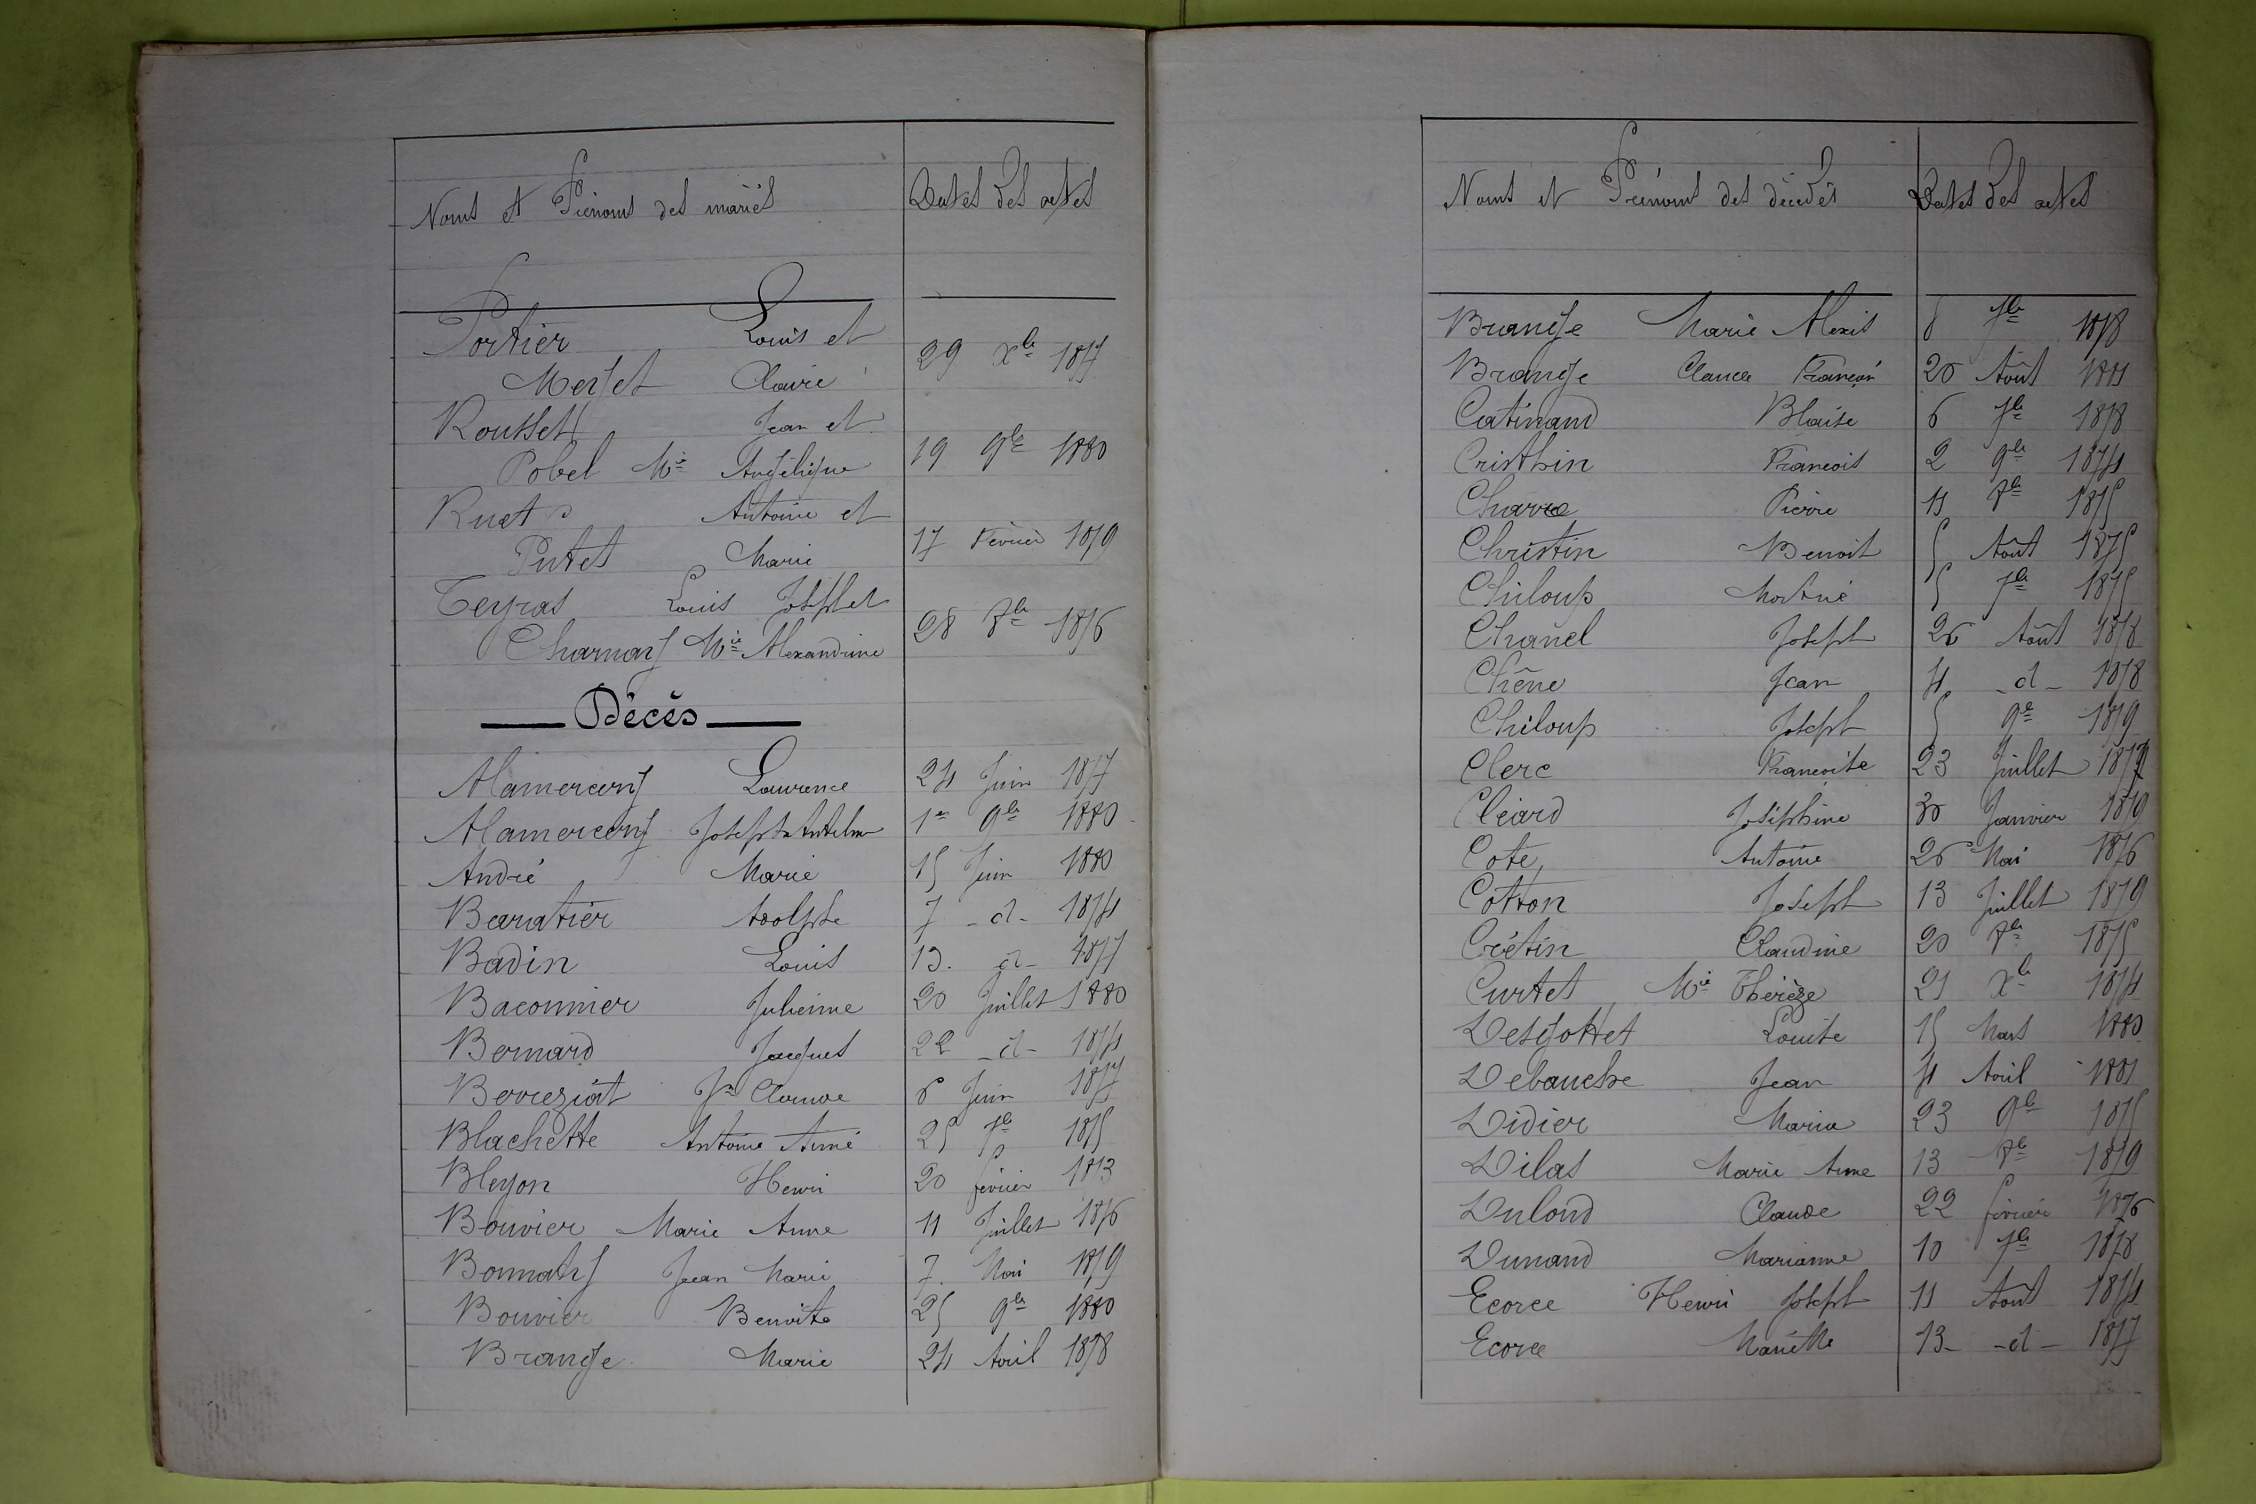 Noms et Prénoms des mariés Dates des actes
Portier Louis et
Merjet Claire 29 Xbre 1877
Rousset Jean et
Pobel Mie Angélique 19 9bre 1880
Ruet Antoine et
Putet Marie 17 Février 1879
Teyras Louis Joseph et
Charnay Mie Alexandrine 28 8bre 1876
Décès
Alamercery Laurence 24 Juin 1877
Alamercery Joseph Anthelme 1er 9bre 1880
André Marie 15 Juin 1880
Baratier Adolphe 7 -d- 1874
Badin Louis 13. -d- 1877
Baconnier Julienne 20 Juillet 1880
Bernard Jacques 22 -d- 1874
Berreziat Jn Claude 6 Juin 1877
Blachette Antoine Aimé 25 7bre 1875
Bleyon Henri 20 février 1873
Bouvier Marie Anne 11 Juillet 1876
Bonnaty Jean Marie 7. Mai 1879
Bouvier Benoite 25 9bre 1880
Brange Marie 24 Avril 1878
Noms et Prénoms des décédés Dates des actes
Brange Marie Alexis 8 7bre 1878
Brange Claude François 20 Août
Catinaud Blaise 6 7bre 1878
Cristhin François 2 9bre 1874
Charre Pierre 11 8bre 1875
Christin Benoit 5 Août 1875
Chiloup 5 7bre 1875
Chanel Joseph 26 Août 1878
Chêne Jean 4 -d- 1878
Chiloup Joseph 5 9bre 1879
Clerc Françoise 23 Juillet
Cléard Joséphine 30 Janvier 1879
Cote Antoine 26 Mai 1876
Cotton Joseph 13 Juillet 1879
Crétin Claudine 20 8bre 1875
Curtet Mie Thérèze 21 Xbre 1874
Desgottet Louise 15 Mars 1880
Debauche Jean 4 Avril 1881
Didier Maria 23 9bre 1875
Dilas Marie Anne 13 8bre 1879
Dulond Claude 22 février 1876
Dunand Marianne 10 7bre 1878
Ecorce Henri Joseph 11 Août 1874
Ecorce Mariette 13 -d- 1877